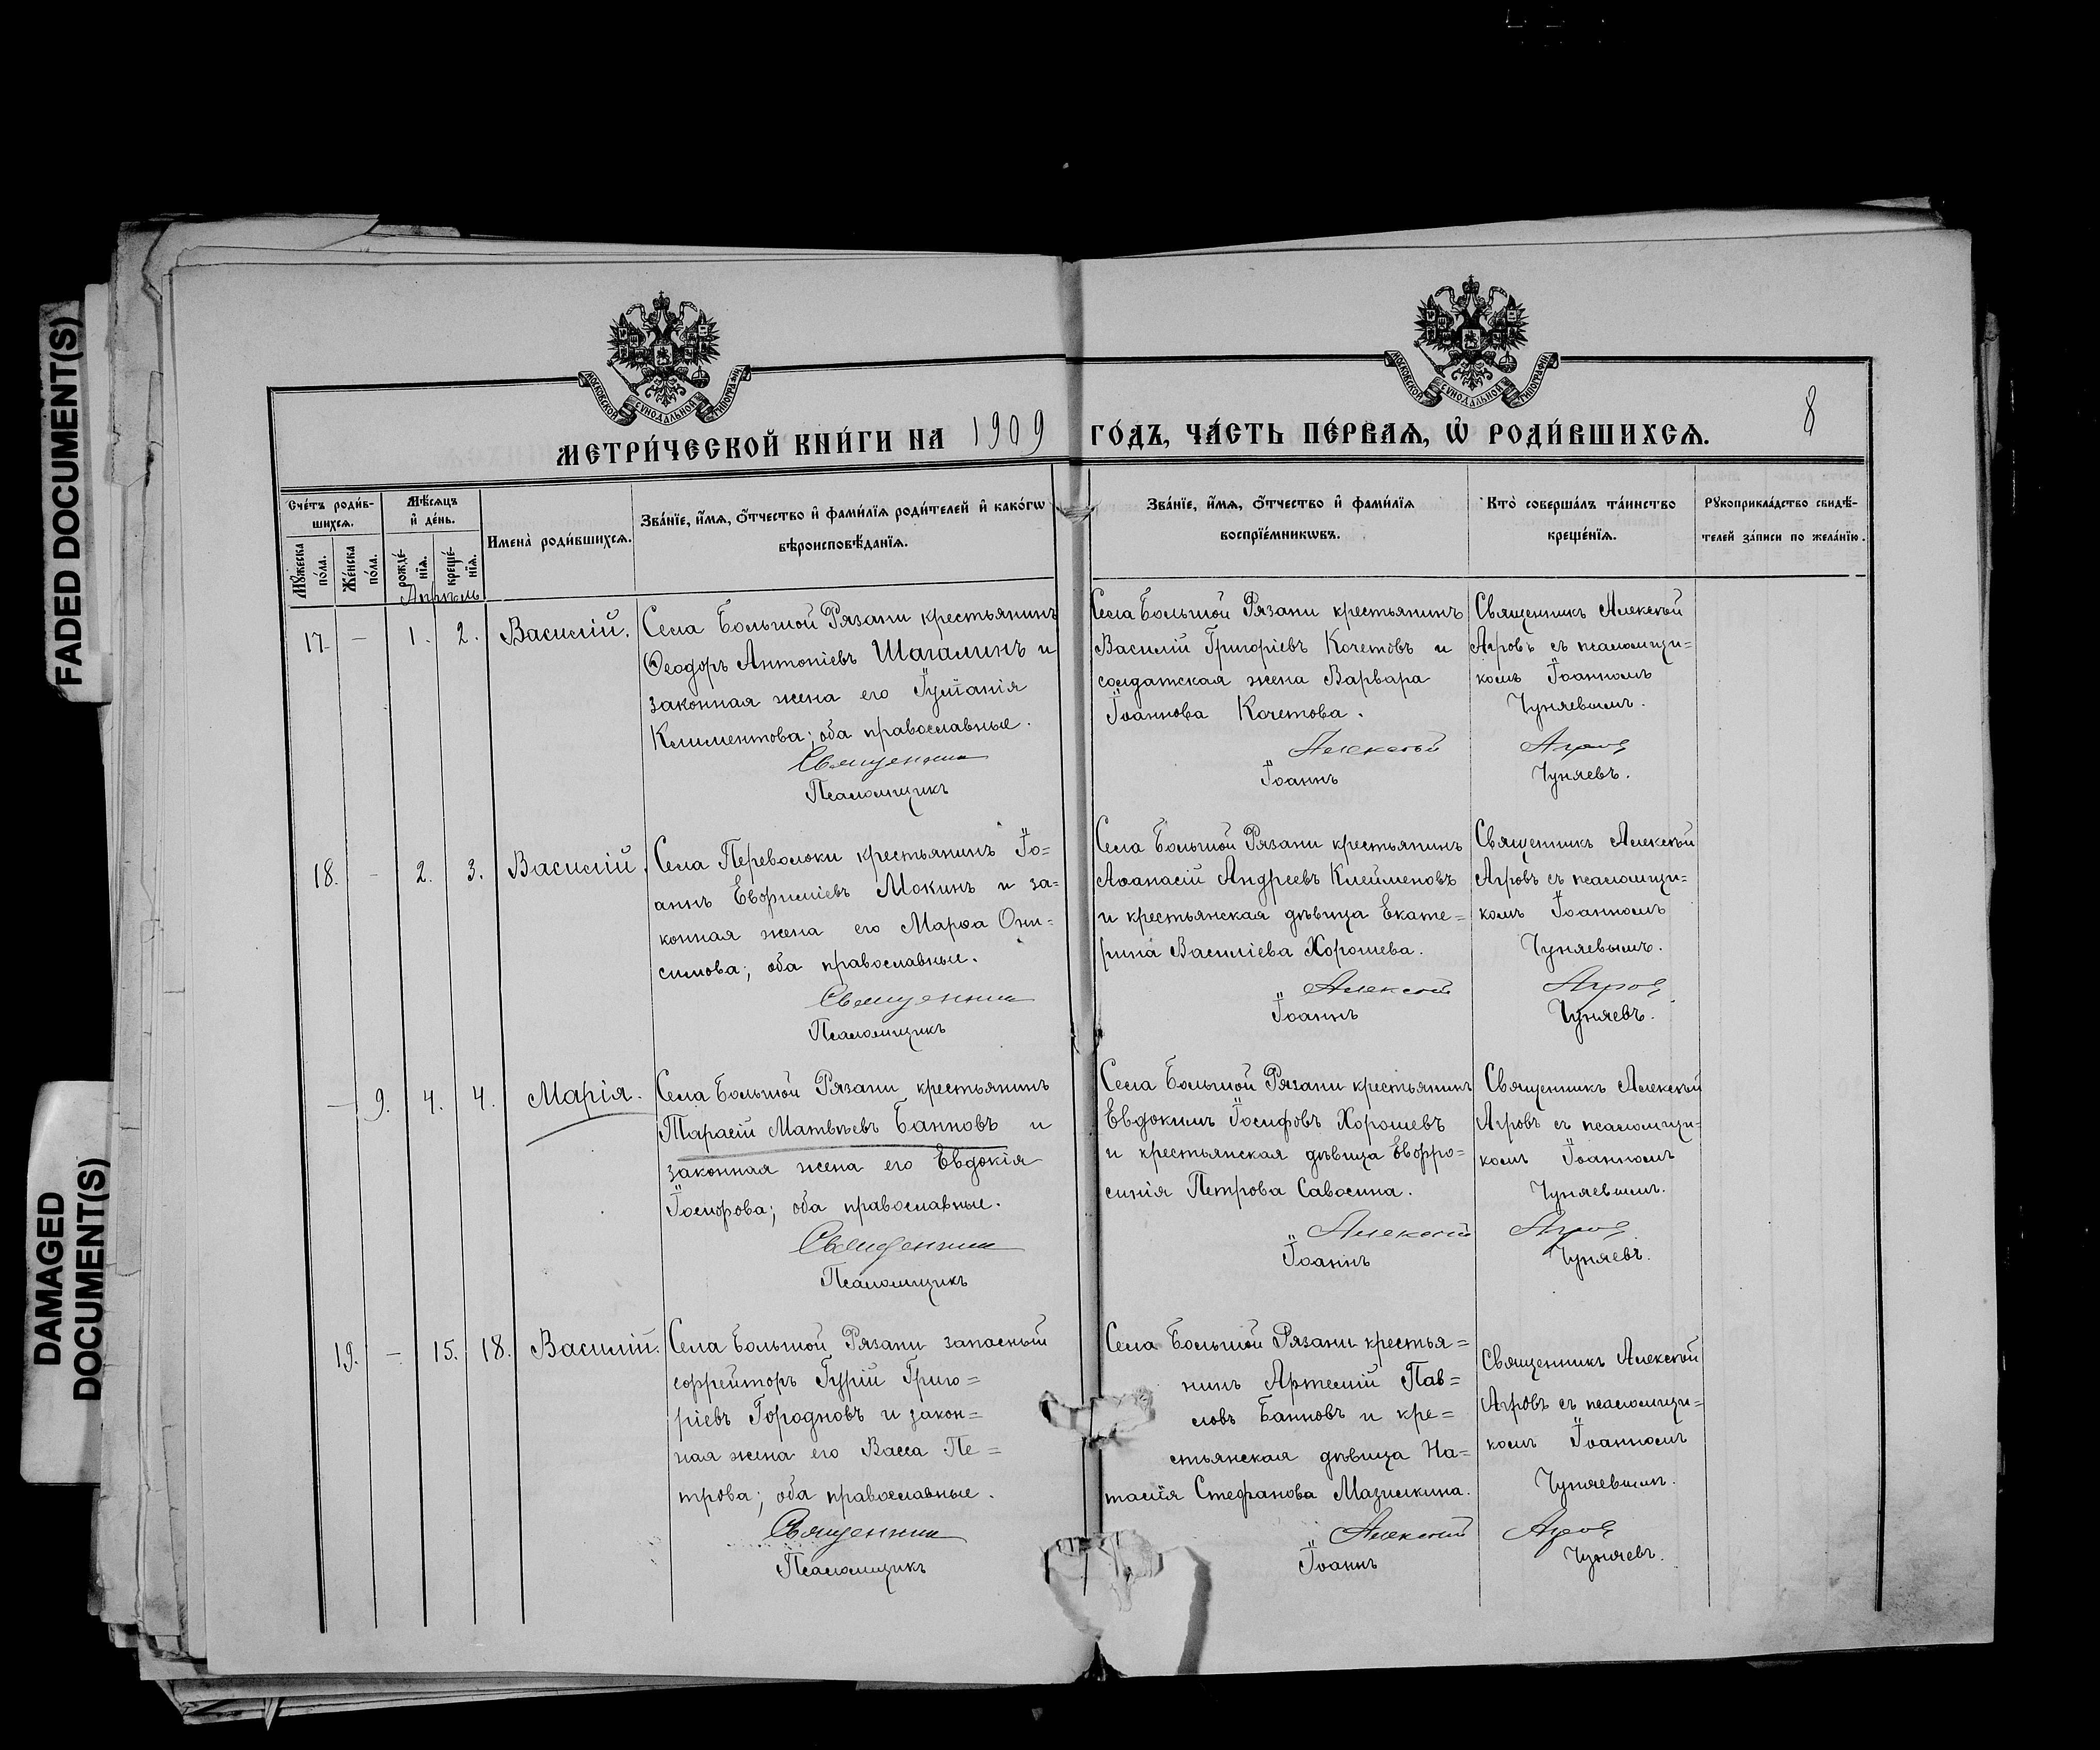 FADED DOCUMENT(S)
DAMAGED
DOCUMENT(S)
МОСКОВСКОЙ СѴНОДАЛЬНОЙ ТИПОГРАФІИ
МОСКОВСКОЙ СѴНОДАЛЬНОЙ ТИПОГРАФІИ
8
МЕТРИ́ЧЕСКОЙ КНИ́ГИ НА 1909 ГО́ДЪ, ЧА́СТЬ ПЕ́РВАѦ, Ѡ҆ РОДИ́ВШИХСѦ.
Сче́тъ роди́в-
шихсѧ.
Мꙋ́жеска
по́ла.
Же́нска
по́ла.
Мѣ́сѧцъ
и҆ де́нь.
рожде́-
нїѧ.
креще́-
нїѧ.
Имена̀ роди́вшихсѧ.
Зва́нїе, и҆́мѧ, ѻ҆́тчество и҆ фами́лїѧ роди́телей и҆ како́гѡ
вѣроисповѣ́данїѧ.
Зва́нїе, и҆́мѧ, ѻ҆́тчество и҆ фами́лїѧ
воспрїе́мникѡвъ.
Кто̀ соверша́лъ та́инство
креще́нїѧ.
Рꙋкоприкла́дство свидѣ́-
телей за́писи по жела́нїю.
Апрѣль
17. — 1. 2. Василій.
Села Большой Рязани крестьянинъ
Ѳеодоръ Антоніевъ Шагалинъ и
законная жена его Іуліанія
Климентова; оба православные.
Священник
Псаломщикъ
Села Большой Рязани крестьянинъ
Василій Григоріевъ Кочетовъ и
солдатская жена Варвара
Іоаннова Кочетова.
Алексѣй
Іоаннъ
Священникъ Алексѣй
Агровъ съ псаломщи=
комъ Іоанномъ
Чуняевымъ.
Агров
Чуняевъ.
18. - 2. 3. Василій.
Села Переволоки крестьянинъ Іо=
аннъ Евфиміевъ Мокинъ и за=
конная жена его Марѳа Они=
симова; оба православные.
Священник
Псаломщикъ
Села Большой Рязани крестьянинъ
Аѳанасій Андреевъ Клейменовъ
и крестьянская дѣвица Екате=
рина Василіева Хорошева.
Алексѣй
Іоаннъ
Священникъ Алексѣй
Агровъ съ псаломщи=
комъ Іоанномъ
Чуняевымъ.
Агров
Чуняевъ.
— 9. 4. 4. Марія.
Села Большой Рязани крестьянинъ
Тарасій Матвѣевъ Банновъ и
законная жена его Евдокія
Іосифова; оба православные.
Священник
Псаломщикъ
Села Большой Рязани крестьянинъ
Евдокимъ Іосифовъ Хорошевъ
и крестьянская дѣвица Евфро=
синія Петрова Савосина.
Алексѣй
Іоаннъ
Священникъ Алексѣй
Агровъ съ псаломщи=
комъ Іоанномъ
Чуняевымъ.
Агров
Чуняевъ.
19. — 15. 18. Василій.
Села Большой Рязани запасный
ефрейторъ Гурій Григо=
ріевъ Городновъ и закон=
ная жена его Васса Пе=
трова; оба православные.
Священник
Псаломщикъ
Села Большой Рязани крестья=
нинъ Артемій Пав=
ловъ Банновъ и кре=
стьянская дѣвица На=
талія Стефанова Мазилкина.
Алексѣй
Іоаннъ
Священникъ Алексѣй
Агровъ съ псаломщи=
комъ Іоанномъ
Чуняевымъ.
Агров
Чуняевъ.